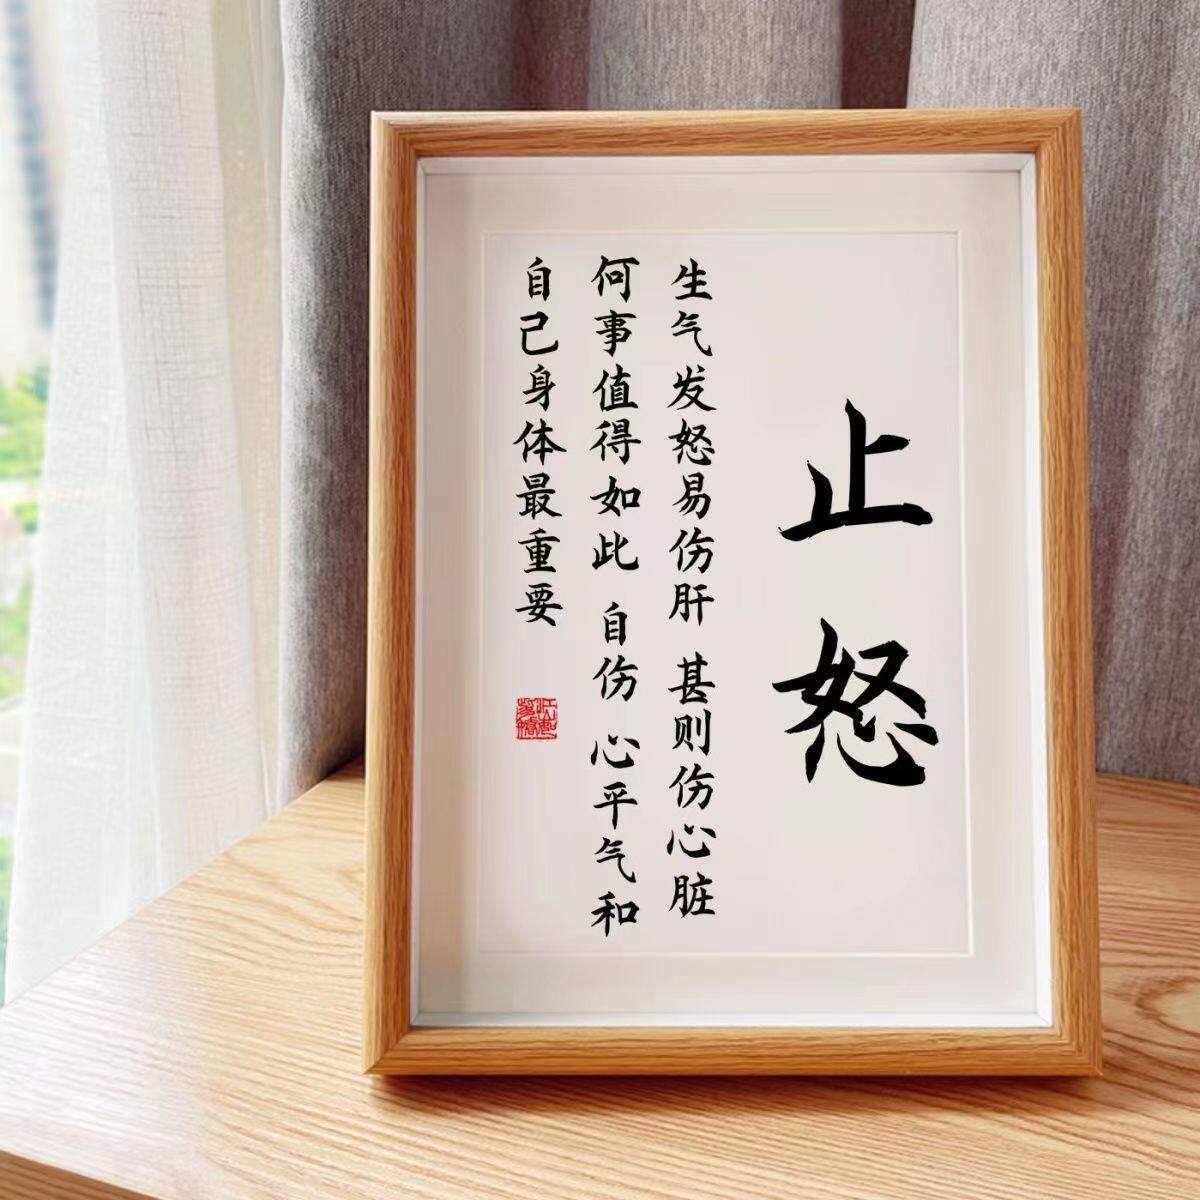 止怒
生气发怒易伤肝 甚则伤心脏
何事值得如此 自伤 心平气和
自己身体最重要